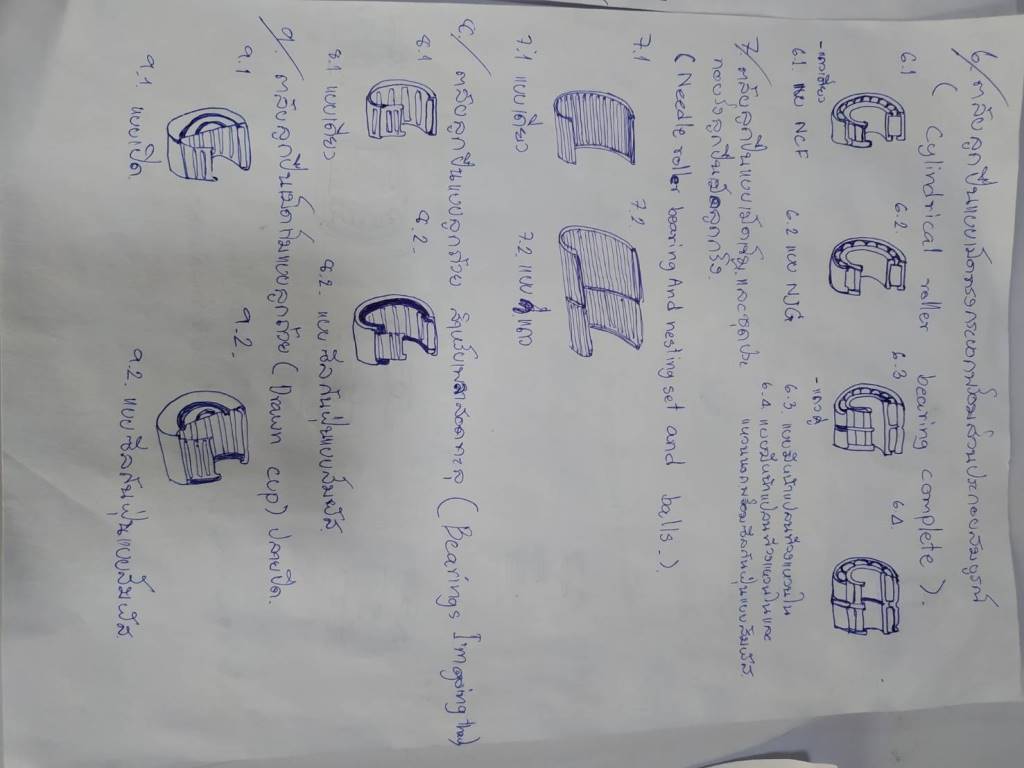 6/ ตลับลูกปืนแบบเม็ดทรงกระบอกพร้อมส่วนประกอบสมบูรณ์
( Cylindrical roller bearing complete ).
6.1 6.2 6.3 6.4
- แถวเดียว - แถวคู่
6.1. แบบ NCF 6.2 แบบ NJG 6.3. แบบมีหน้าแปลนที่วงแหวนใน
6.4. แบบมีหน้าแปลนที่วงแหวนในและ
แหวนนอกพร้อมซีลกันฝุ่นแบบสัมผัส
7/ ตลับลูกปืนแบบเม็ดเข็ม และชุดประ
กอบรังลูกปืนเม็ดลูกกรัง.
( Needle roller bearing And nesting set and balls. )
7.1 7.2
7.1 แบบเดี่ยว 7.2 แบบคู่แถว
8./ ตลับลูกปืนแบบลูกถ้วย สำหรับเพลาสอดทะลุ ( Bearings
8.1 8.2.
8.1 แบบเดี่ยว 8.2. แบบซีลกันฝุ่นแบบสัมผัส
9. ตลับลูกปืนเม็ดเข็มแบบลูกถ้วย ( Drawn cup) ปลายปิด.
9.1 9.2.
9.1 แบบเปิด. 9.2. แบบซีลกันฝุ่นแบบสัมผัส